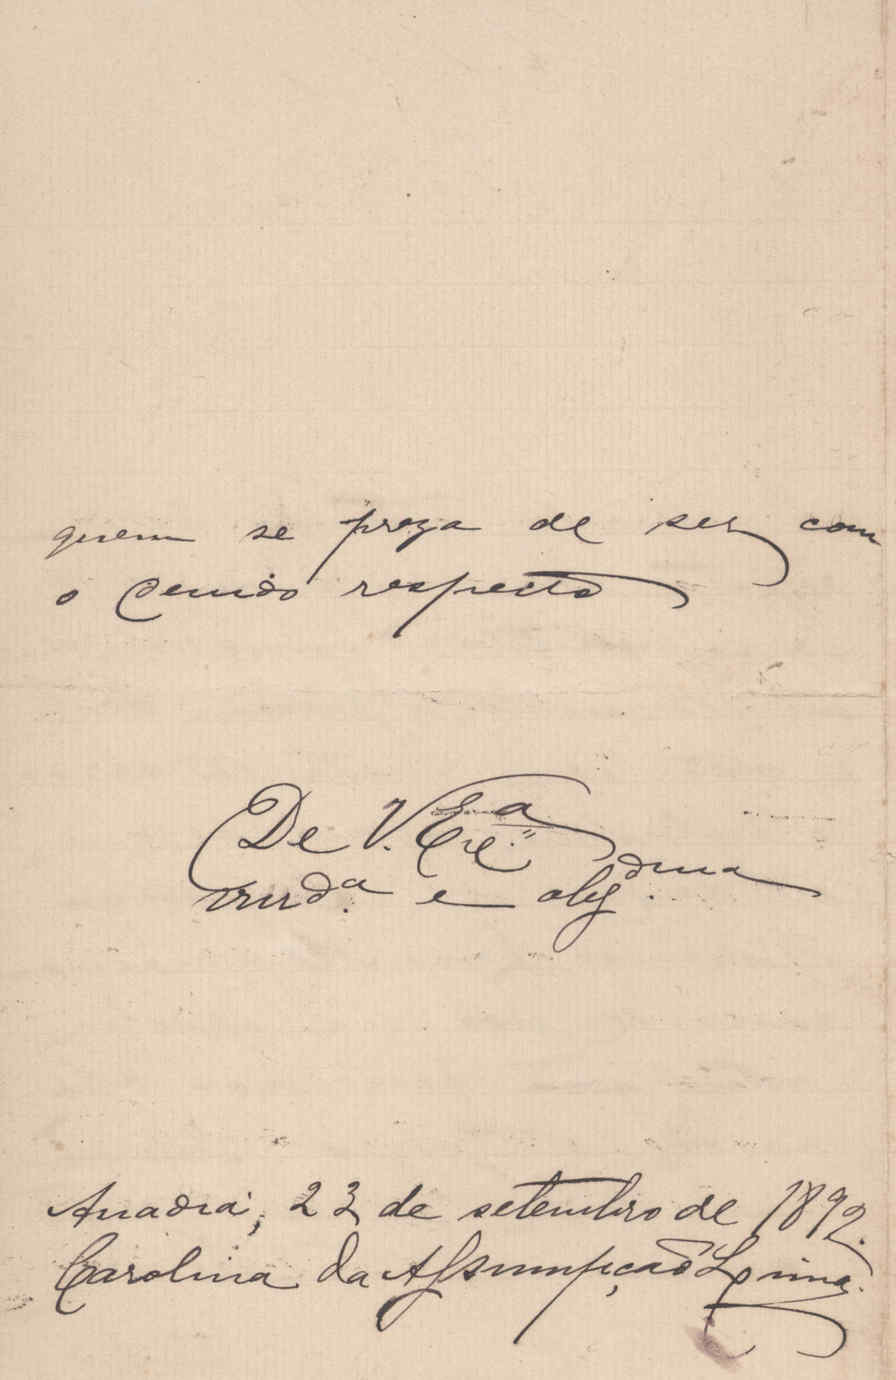 quem se preza de ser com
o devido respeito
De V. Exc.ª
mr.da e obg.dma
Anadia, 23 de setembro de 1892.
Carolina da Assumpção Lima.